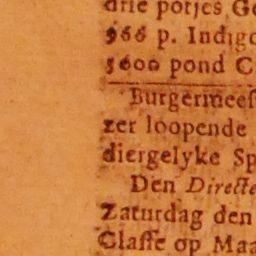 drie potjes Ge
966 p. Indigo
5600 pond C
Burgermees
zer loopende
diergelyke Sp
Den Directe
Zaturdag den
Classe op Maa